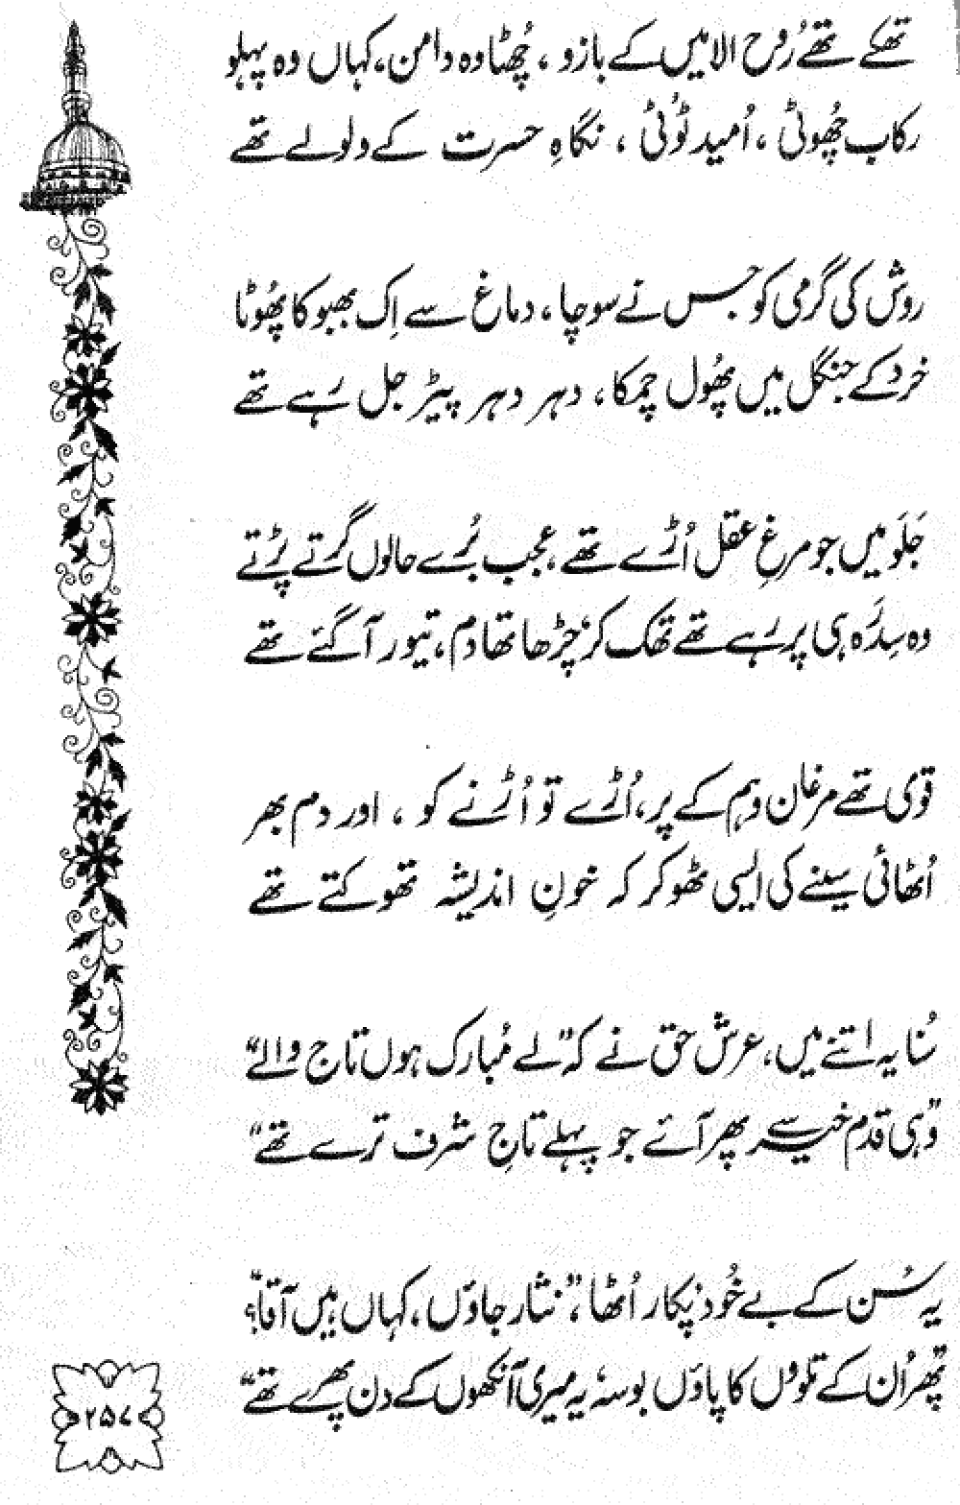 تھکے تھے رُوح الامیں کے بازو ، چُھٹا وہ دامن، کہاں وہ پہلو
رکاب چُھوٹی ، اُمید ٹُوٹی ، نگاہِ حسرت کے ولولے تھے
روش کی گرمی کو جس نے سوچا ، دماغ سے اِک بھبوکا پُھوٹا
خرد کے جنگل میں پُھول چمکا ، دہر دہر پیڑ جل رہے تھے
جَلَو میں جو مرغِ عقل اُڑے تھے ، عجب بُرے حالوں گرتے پڑتے
وہ سِدرَہ ہی پر رہے تھے تھک کر، چڑھا تھا دم، تیور آ گئے تھے
قوی تھے مرغان وہم کے پر، اُڑے تو اُڑنے کو ، اور دم بھر
اُٹھائی سینے کی ایسی ٹھوکر کہ خونِ اندیشہ تھوکتے تھے
سُنا یہ اتنے میں، عرش حق نے کہ ”لے مُبارک ہوں تاج والے“
”وہی قدم خیر سے پھر آئے جو پہلے تاجِ شرف ترے تھے“
یہ سُن کے بے خُود پکار اُٹھا ، ”نثار جاؤں ، کہاں ہیں آقا؟“
”پھر اُن کے تلووں کا پاؤں بوسہ، یہ میری آنکھوں کے دن پھرے تھے“
۲۵۷